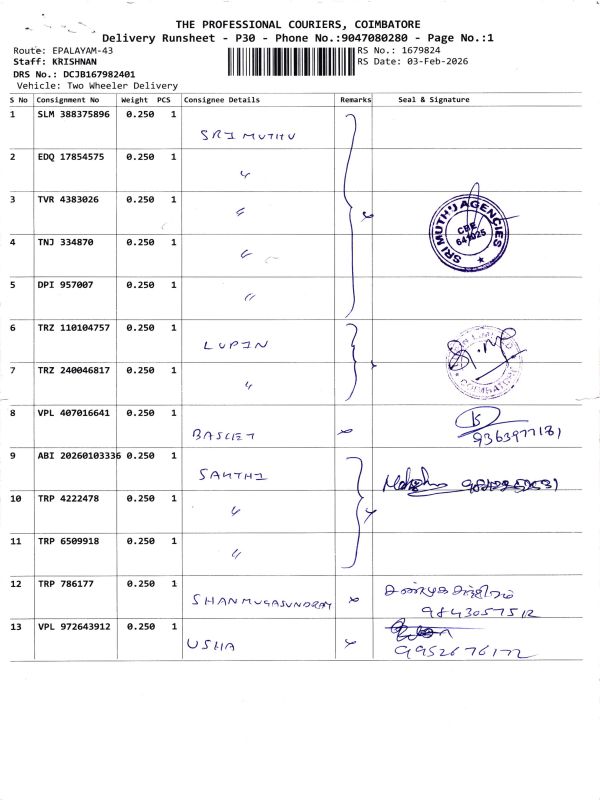 THE PROFESSIONAL COURIERS, COIMBATORE
Delivery Runsheet - P30 - Phone No.:9047080280 - Page No.:1
Route: EPALAYAM-43 RS No.: 1679824
Staff: KRISHNAN RS Date: 03-Feb-2026
DRS No.: DCJB167982401
Vehicle: Two Wheeler Delivery
S No Consignment No Weight PCS Consignee Details Remarks Seal & Signature
1 SLM 388375896 0.250 1
SRI MUTHU
2 EDQ 17854575 0.250 1
"
3 TVR 4383026 0.250 1
"
SRI MUTHU AGENCIES
CBE
641025
4 TNJ 334870 0.250 1
"
5 DPI 957007 0.250 1
"
6 TRZ 110104757 0.250 1
LUPIN
COIMBATORE
7 TRZ 240046817 0.250 1
"
8 VPL 407016641 0.250 1
BASKET 9363977181
9 ABI 20260103336 0.250 1
SAKTHI
10 TRP 4222478 0.250 1
"
11 TRP 6509918 0.250 1
"
12 TRP 786177 0.250 1
SHANMUGASUNDRAM
9843057512
13 VPL 972643912 0.250 1
USHA 9952676172